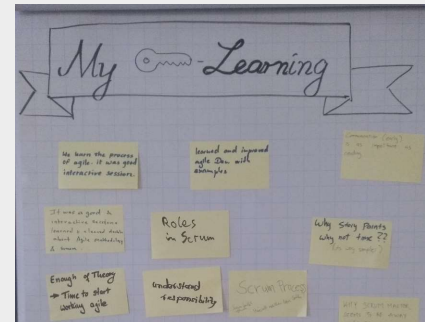 My Learning
We learn the process
of agile. it was good
interactive session.
learned and improved
agile Dev with
examples
is as important as
coding
It was a good &
interacting session
learned & cleared doubts
about Agile methodology
& scrum.
Roles
in Scrum
Why Story Points
Why not time ??
Enough of Theory
→ Time to start
working agile
understand
responsibility
Scrum Process
WHY SCRUM MASTER